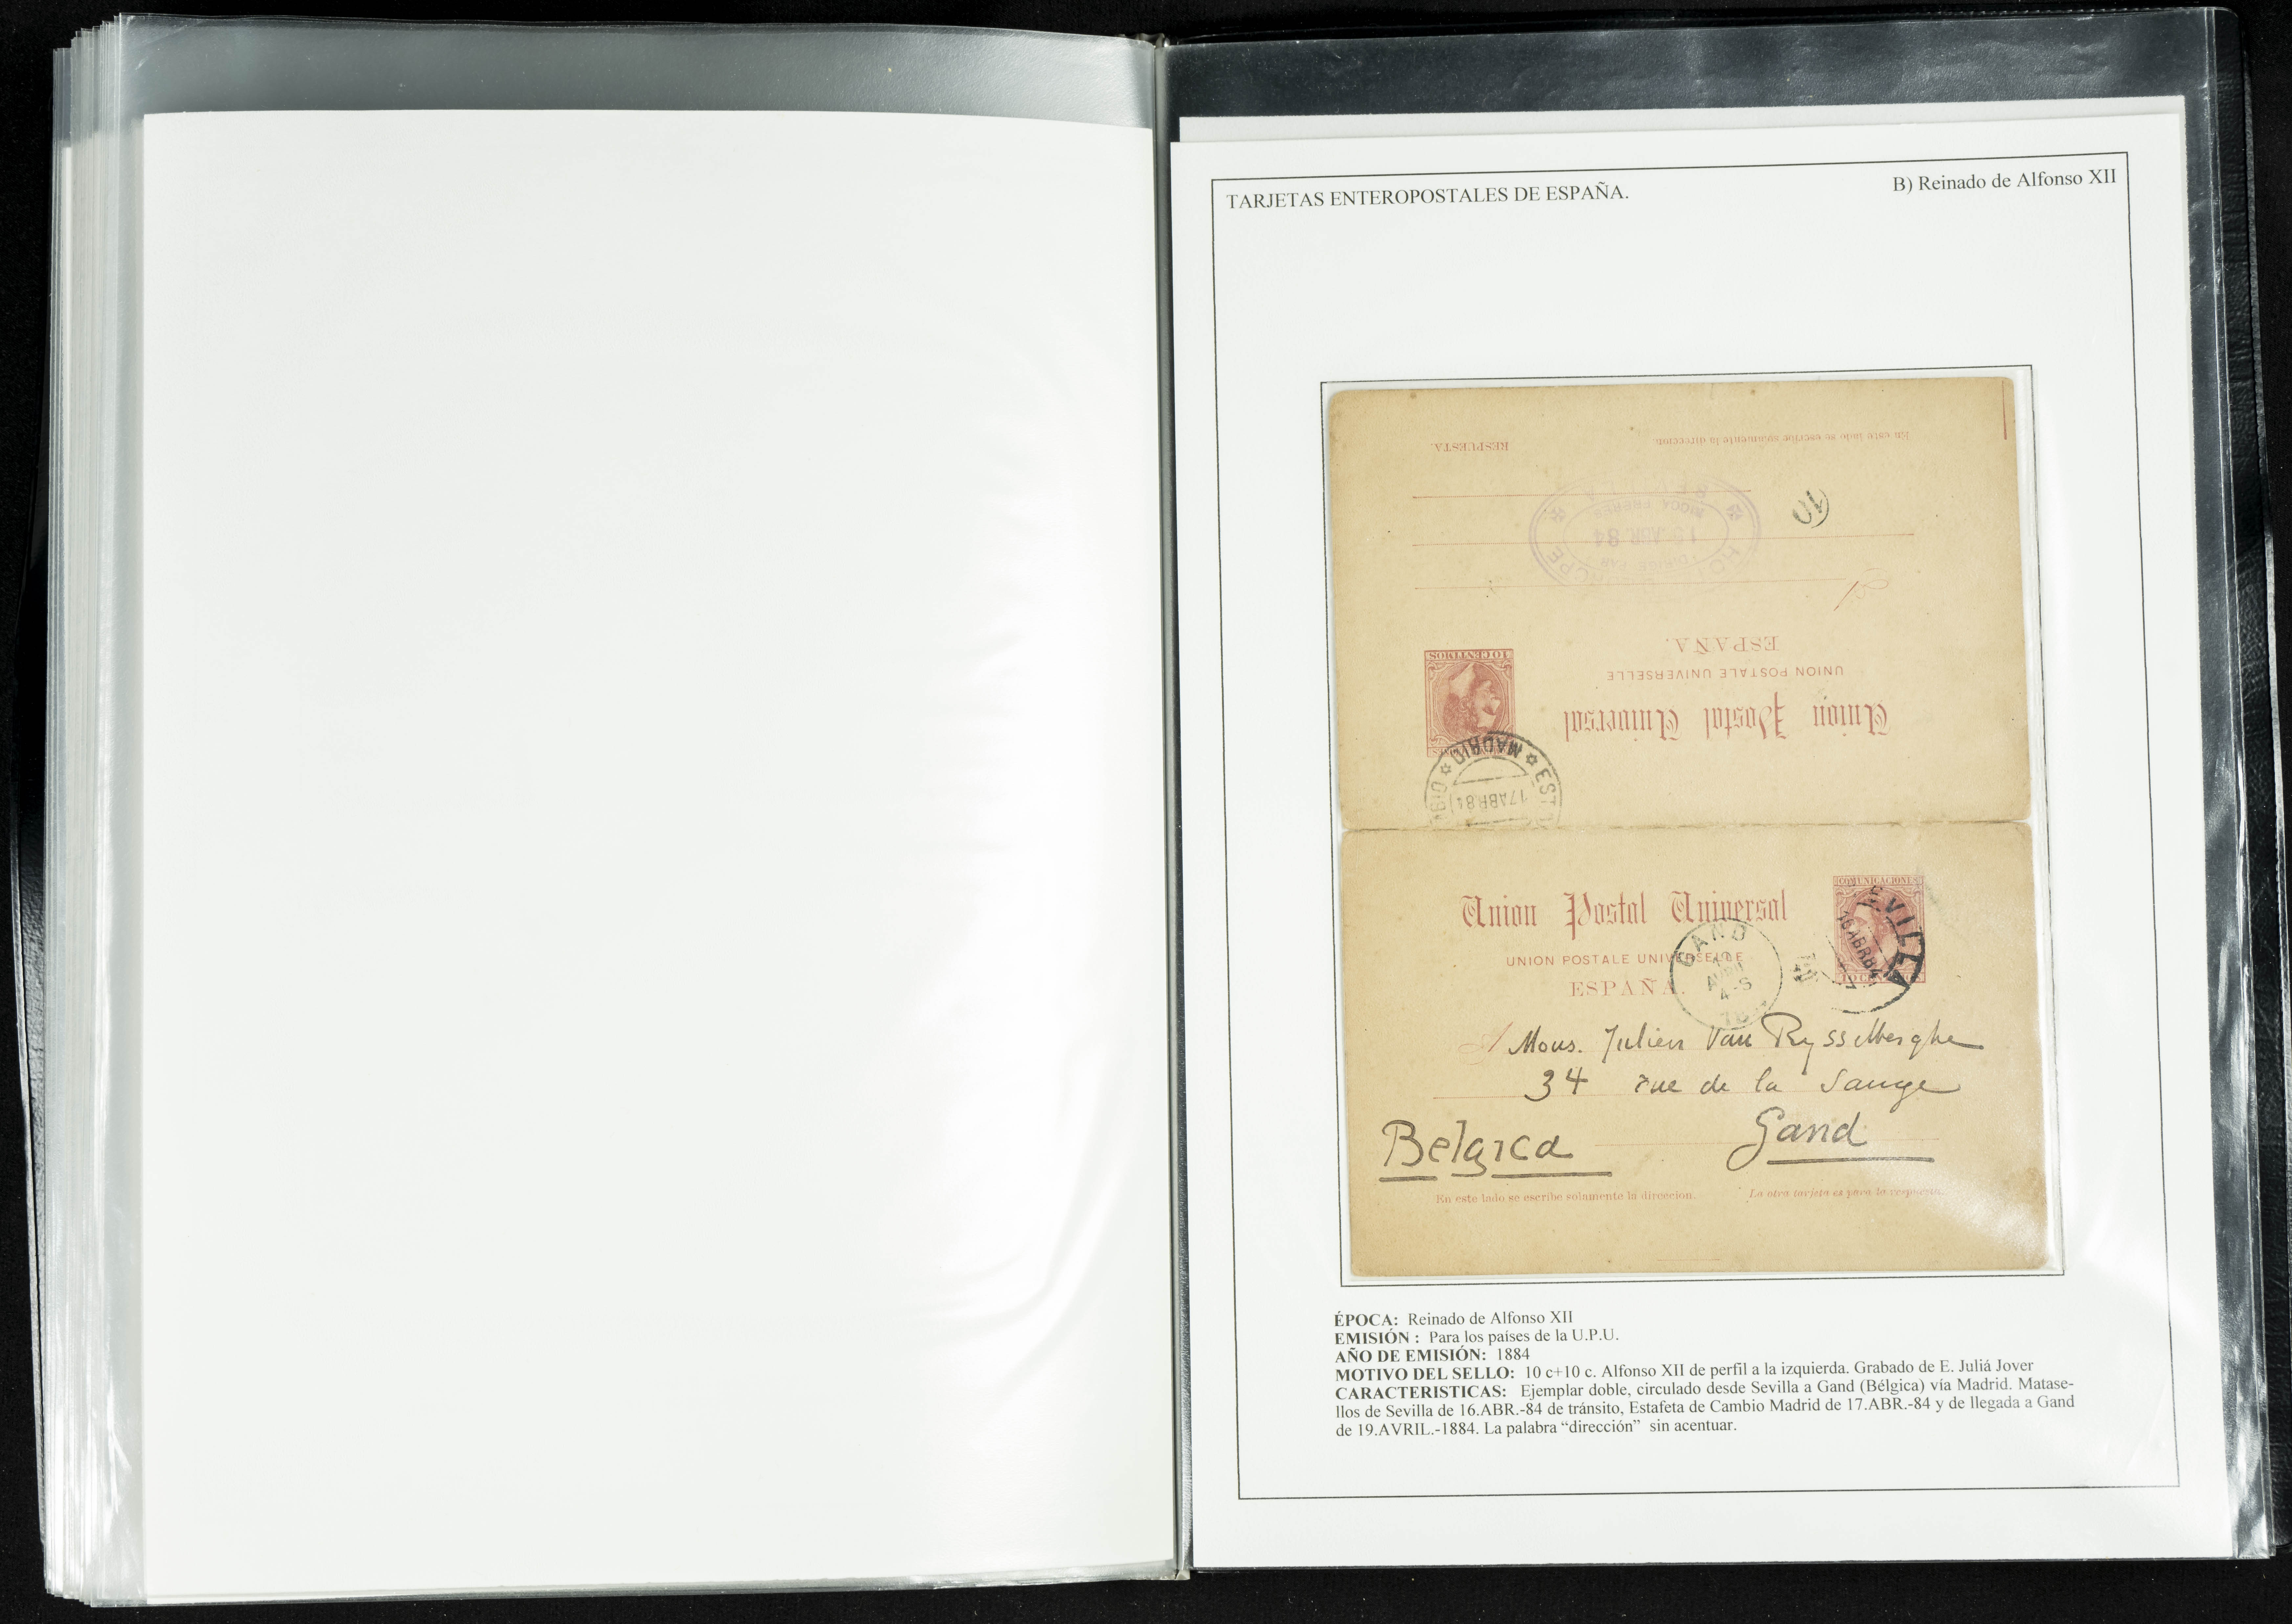 TARJETAS ENTEROPOSTALES DE ESPAÑA.
B) Reinado de Alfonso XII
En este lado se escribe solamente la direccion.
RESPUESTA.
SEVILLA
RICCA FRERES
ABR. 84
DIRIGÉ PAR
10
ESPAÑA.
UNION POSTALE UNIVERSELLE
Union Postal Universal
10 CENTIMOS
MADRID
17 ABR 84
Union Postal Universal
UNION POSTALE UNIVERSELLE
ESPAÑA.
COMUNICACIONES
SEVILLA
16 ABR 84
GAND
19
AVRIL
4-S
A Mons. Julien Van Rysselberghe
34 rue de la Sauge
Gand
Belgica
En este lado se escribe solamente la direccion.
La otra tarjeta es para la respuesta.
ÉPOCA: Reinado de Alfonso XII
EMISIÓN : Para los países de la U.P.U.
AÑO DE EMISIÓN: 1884
MOTIVO DEL SELLO: 10 c+10 c. Alfonso XII de perfil a la izquierda. Grabado de E. Juliá Jover
CARACTERISTICAS: Ejemplar doble, circulado desde Sevilla a Gand (Bélgica) vía Madrid. Matase-
llos de Sevilla de 16.ABR.-84 de tránsito, Estafeta de Cambio Madrid de 17.ABR.-84 y de llegada a Gand
de 19.AVRIL.-1884. La palabra “dirección” sin acentuar.